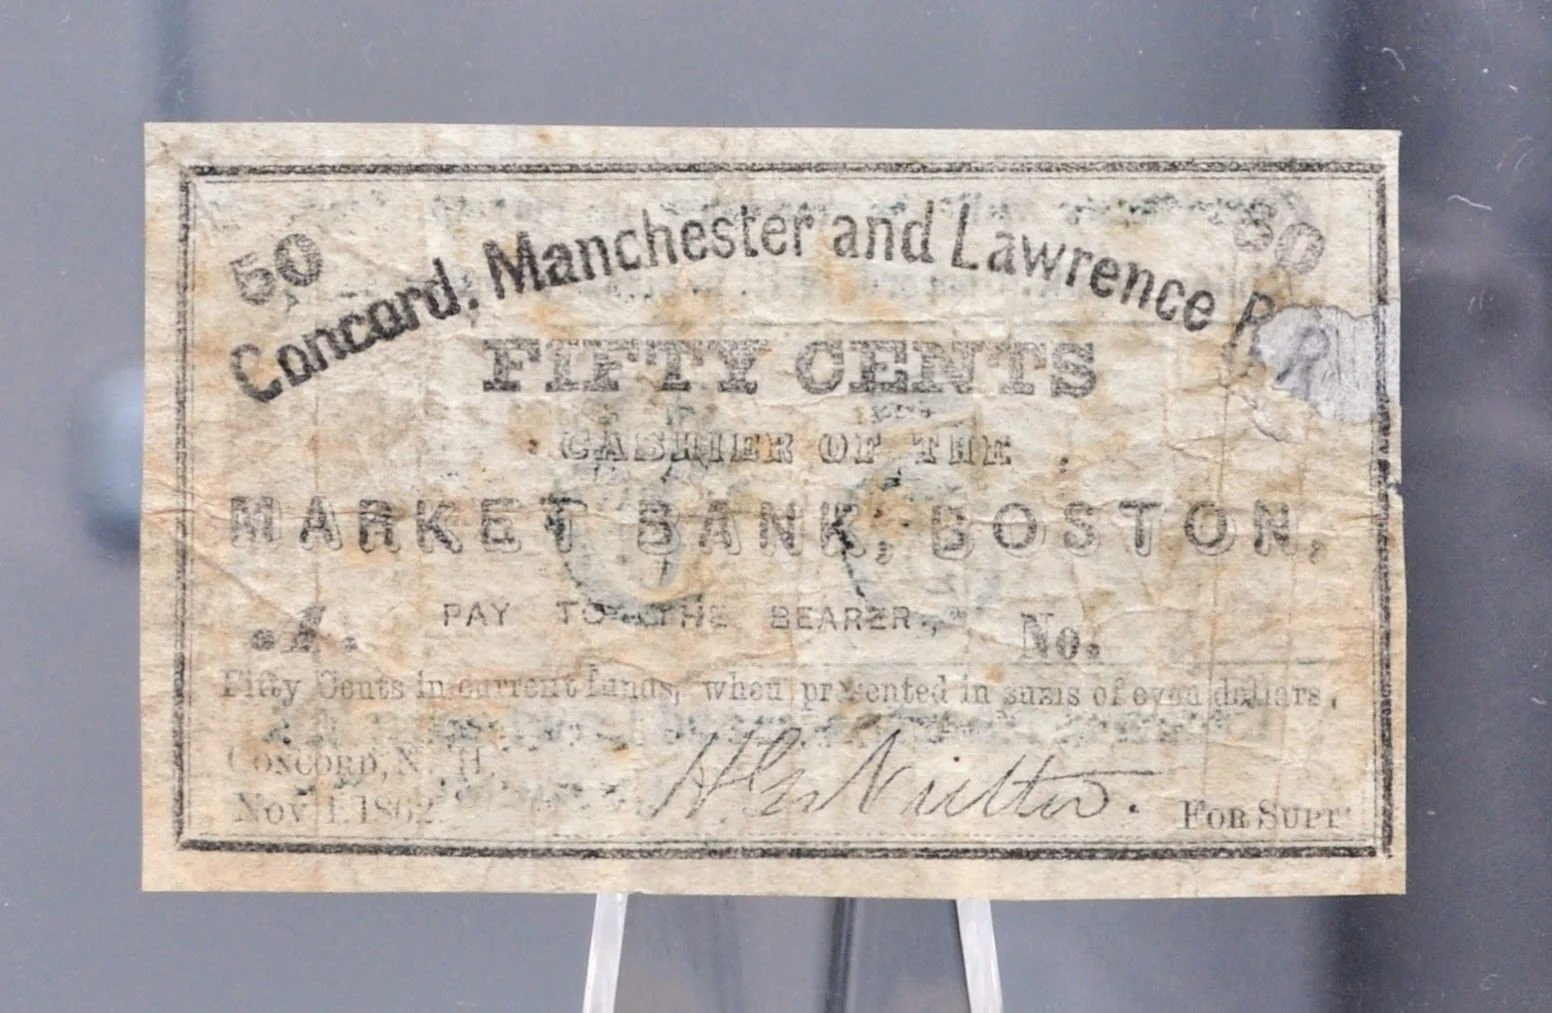 50 50
Concord, Manchester and Lawrence R R
FIFTY CENTS
CASHIER OF THE
MARKET BANK, BOSTON,
PAY TO THE BEARER,
.1. No.
Fifty Cents in current funds, when presented in sums of even dollars.
CONCORD, N. H.
Nov 1, 1862
FOR SUPT